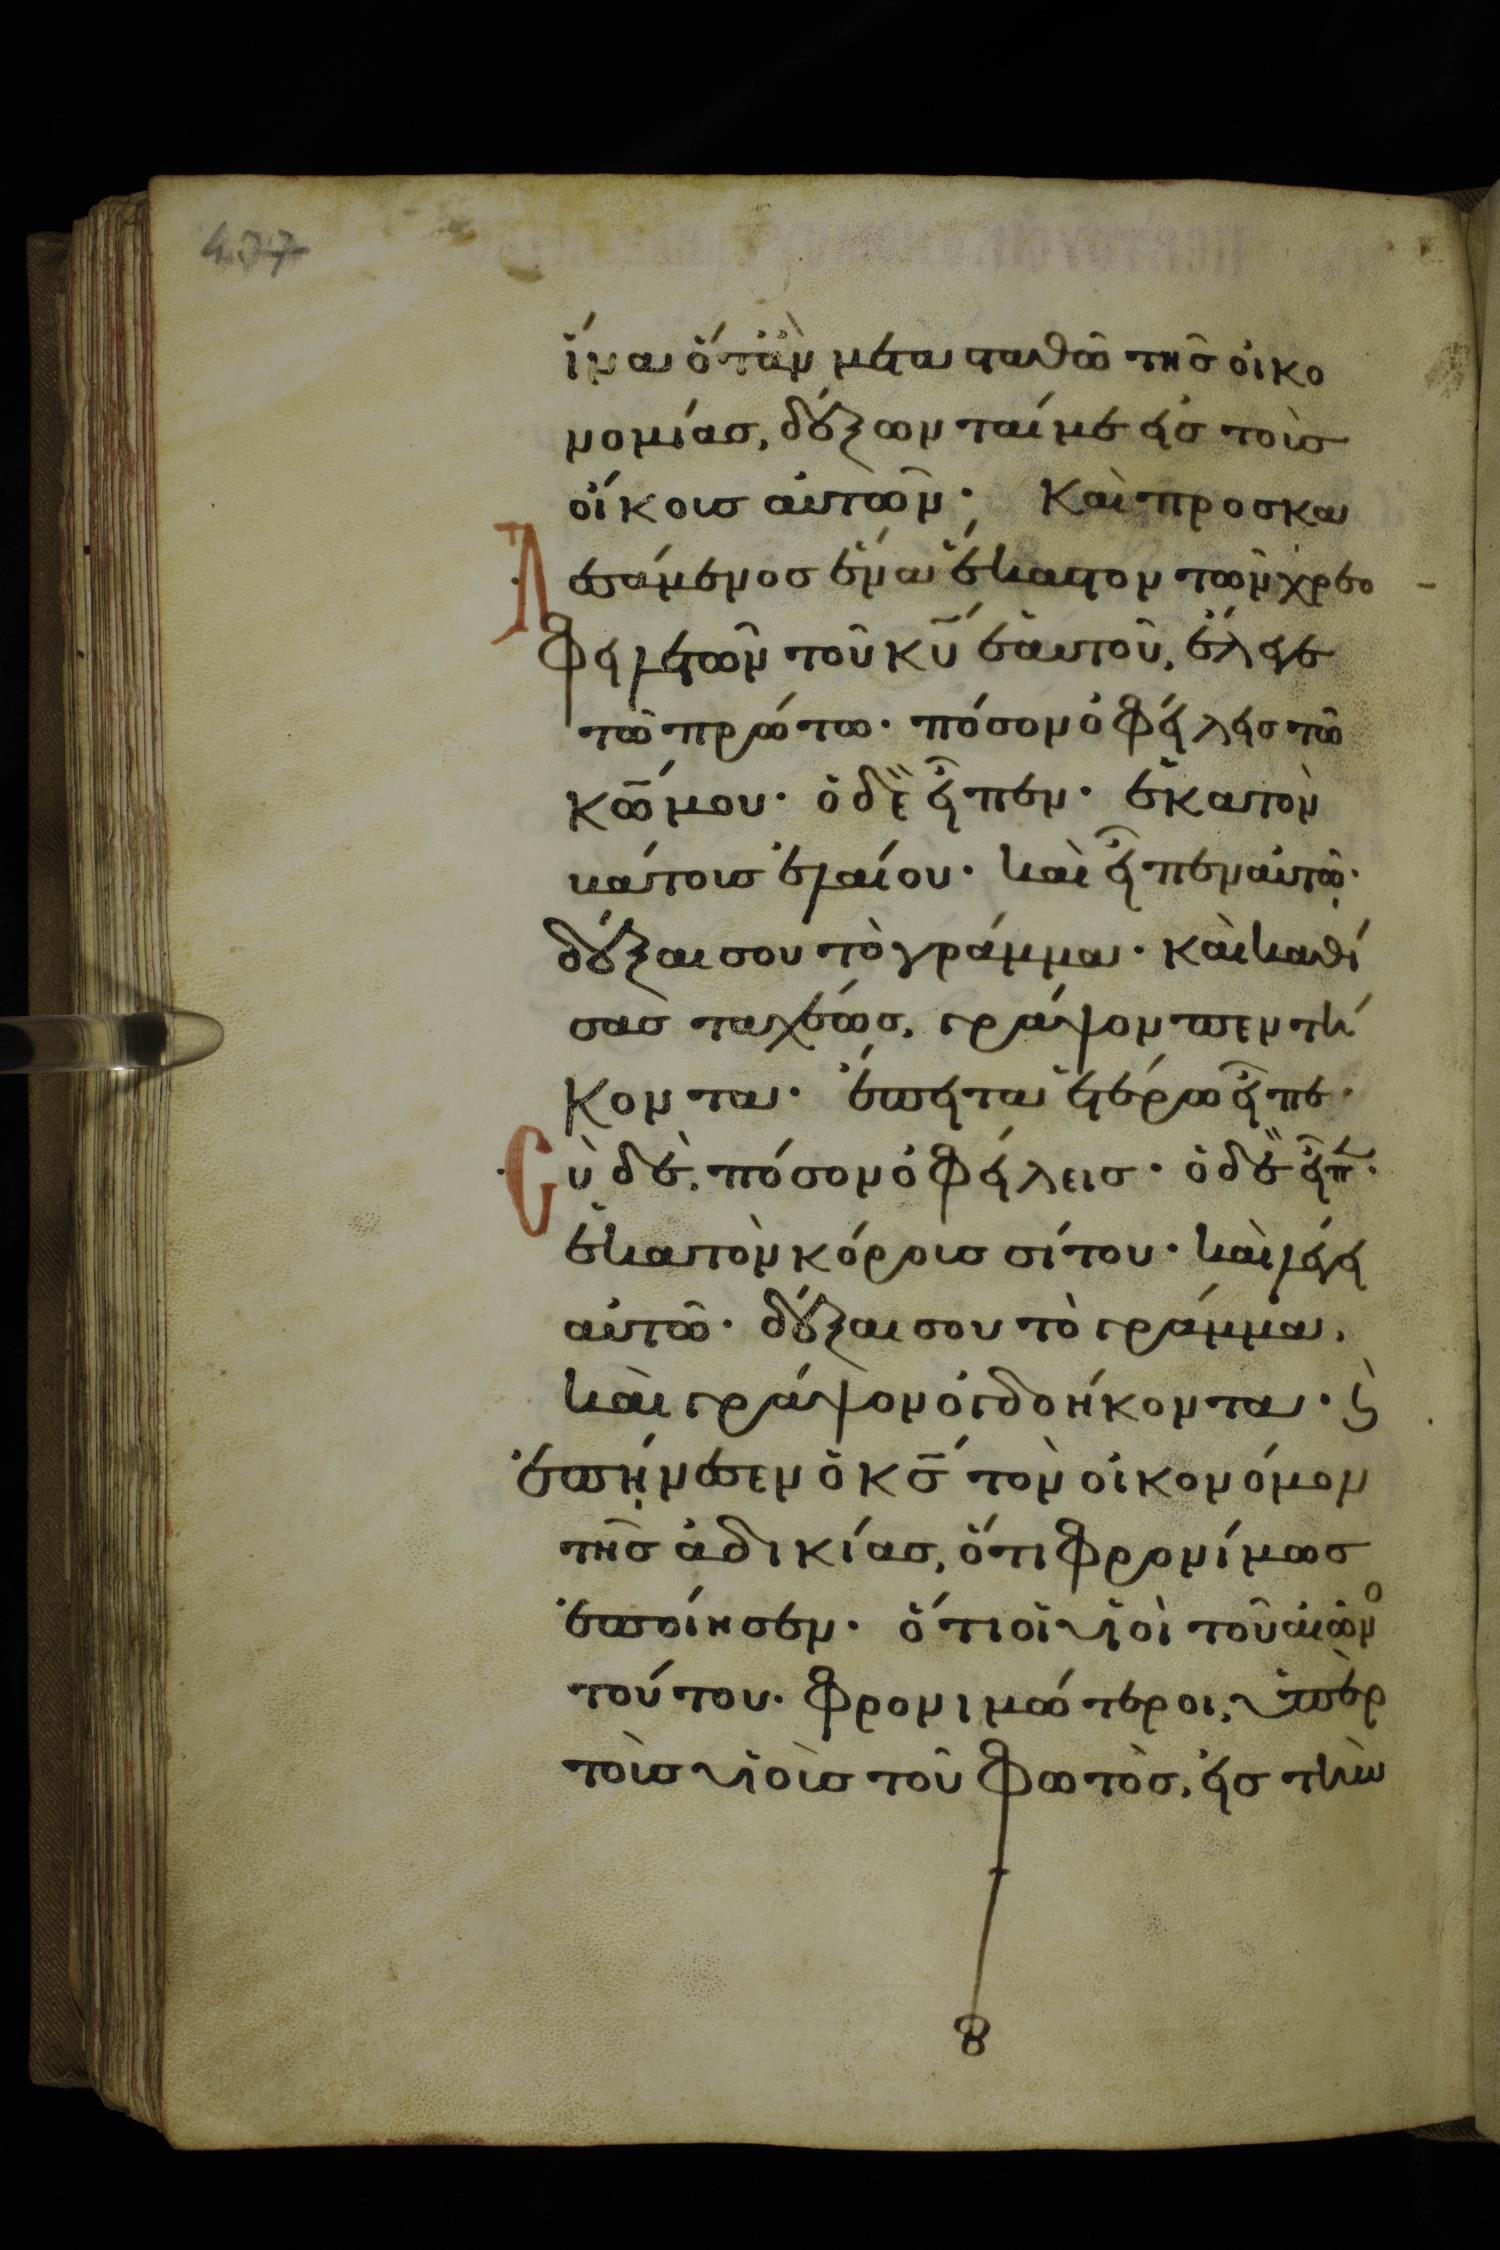 437
ἵνα ὅτὰν μετασταθῶ τῆσ οἰκο
νομίασ, δέξωνταί με εἰσ τοὺσ
οἴκουσ αὐτῶν· Καὶ προσκα
λεσάμενοσ ἕνα ἕκαστον τῶν χρεο
φειλετῶν τοῦ κ̅υ̅ ἑαυτοῦ, ἔλεγε
τῶ πρώτω· πόσον ὀφείλεισ τῶ
κ̅ω̅ μου· ὁ δὲ εἶπεν· ἑκατὸν
κάτουσ ἐλαίου· καὶ εἶπεν αὐτῶ·
δέξαι σου τὸ γράμμα· καὶ καθί
σασ ταχέωσ, γράψον πεντή
κοντα· ἔπειτα ἑτέρω εἶπε·
Σὺ δὲ, πόσον ὀφείλεισ· ὁ δὲ εἶπ·
ἑκατὸν κόρουσ σίτου· καὶ λέγει
αὐτῶ· δέξαι σου τὸ γράμμα,
καὶ γράψον ὀγδοήκοντα· ϛ̀
ἐπήνεσεν ὁ κ̅σ̅ τὸν οἰκονόμον
τῆσ ἀδικίασ, ὅτι φρονίμωσ
ἐποίησεν· ὅτι οἱ υἱοὶ τοῦ αἰῶνο
τούτου· φρονιμώτεροι, ὑπὲρ
τοὺσ υἱοὺσ τοῦ φωτὸσ, εἰσ τὴν